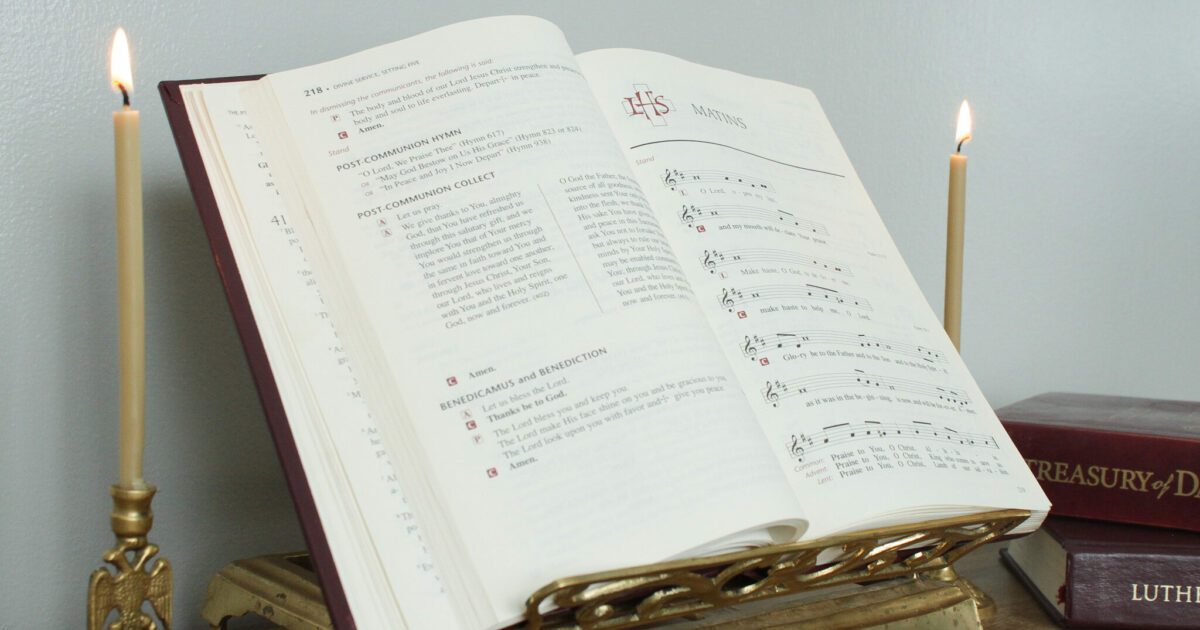 218 • DIVINE SERVICE, SETTING FIVE
In dismissing the communicants, the following is said:
P The body and blood of our Lord Jesus Christ strengthen and preserve
body and soul to life everlasting. Depart ✠ in peace.
C Amen.
Stand
POST-COMMUNION HYMN
"O Lord, We Praise Thee" (Hymn 617)
OR "May God Bestow on Us His Grace" (Hymn 823 or 824)
OR "In Peace and Joy I Now Depart" (Hymn 938)
POST-COMMUNION COLLECT
A Let us pray.
A We give thanks to You, almighty
God, that You have refreshed us
through this salutary gift, and we
implore You that of Your mercy
You would strengthen us through
the same in faith toward You and
in fervent love toward one another;
through Jesus Christ, Your Son,
our Lord, who lives and reigns
with You and the Holy Spirit, one
God, now and forever. (402)
O God the Father, the
source of all goodness,
kindness sent Your
into the flesh, we thank
His sake You have given
and peace in this
ask You not to forsake
but always to rule our
minds by Your Holy
may be enabled
You; through Jesus
our Lord, who lives
You and the Holy Spirit,
now and forever.
C Amen.
BENEDICAMUS and BENEDICTION
A Let us bless the Lord.
C Thanks be to God.
P The Lord bless you and keep you.
The Lord make His face shine on you and be gracious to you.
The Lord look upon you with favor and ✠ give you peace.
C Amen.
IHS
MATINS
Stand
L O Lord, o - pen my lips,
C and my mouth will de - clare Your praise.
L Make haste, O God, to de - liv - er me;
C make haste to help me, O Lord.
C Glo - ry be to the Father and to the Son and to the Holy Spir - it;
as it was in the be - gin - ning, is now, and will be for - ev - er. A - men.
Common: Praise to You, O Christ. Al - le - lu - ia.
Advent: Praise to You, O Christ, King who comes to save us.
Lent: Praise to You, O Christ, Lamb of our sal - va - tion.
TREASURY of DA
LUTHE